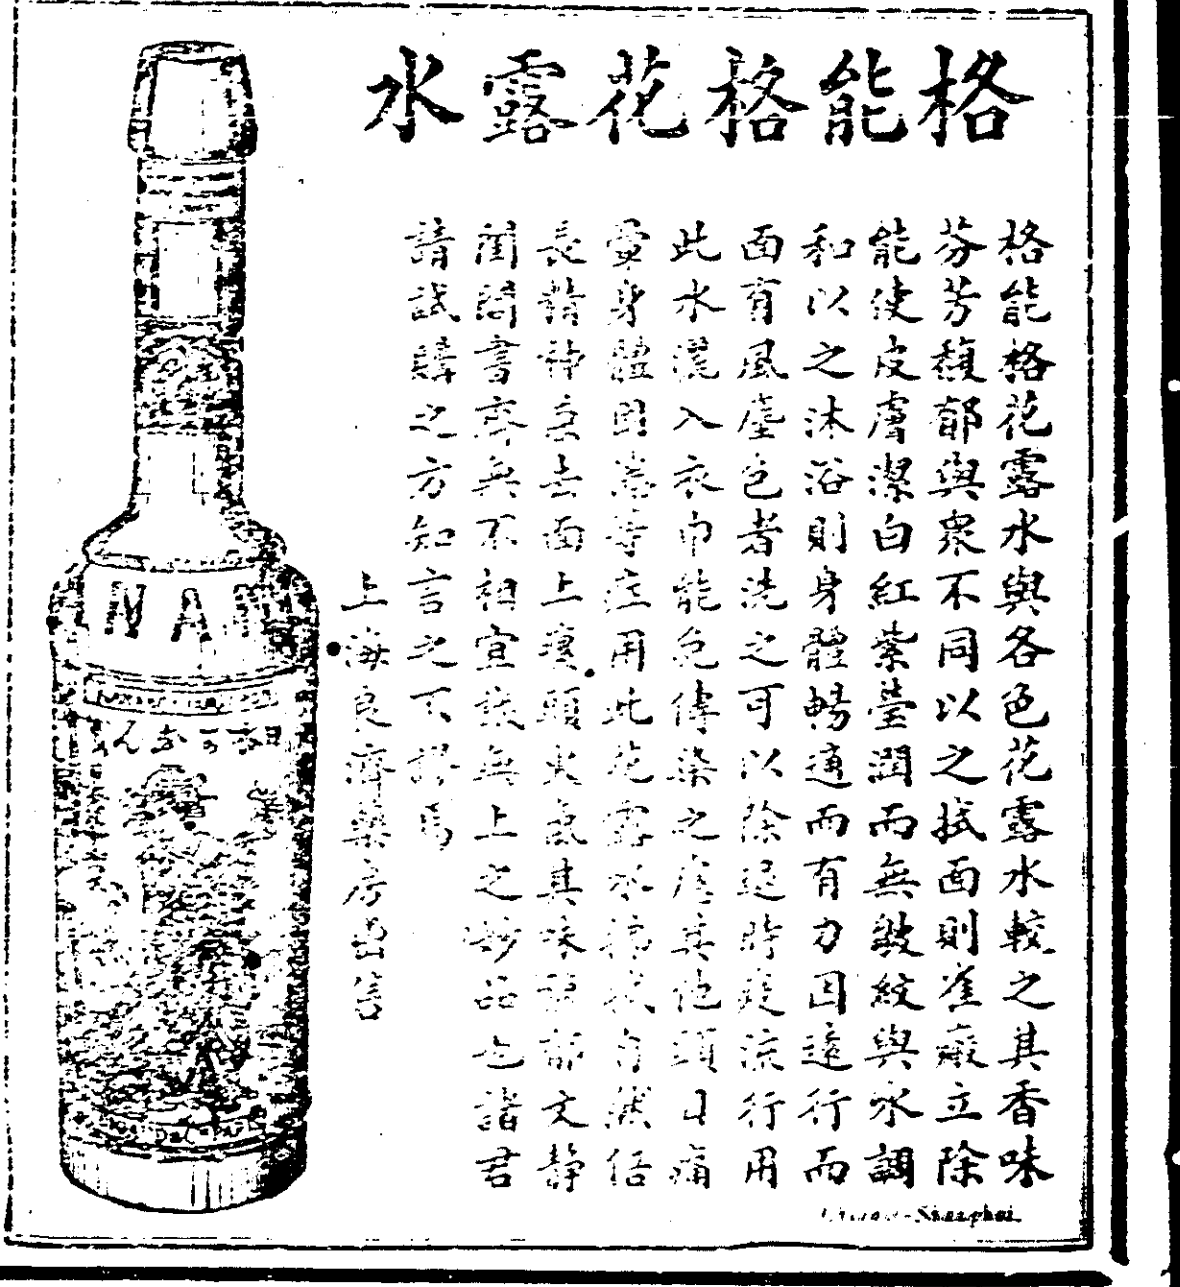 格能格花露水
格能格花露水與各色花露水較之其香味
芬芳馥郁與衆不同以之拭面則雀癍立除
能使皮膚潔白紅紫瑩潤而無皺紋與水調
和以之沐浴則身體暢適而有力因遠行而
面有風塵色者洗之可以除退時疫流行用
此水灑入衣巾能免傳染之症其他頭目痛
暈身體困憊等症用此花露水拂拭自然倍
長精神並去面上瘢頭火氣其味馥郁文靜
閨閣書齋無不相宜誠無上之妙品也諸君
請試購之方知言之不謬焉
上海良濟藥房啟
NAN
Shanghai